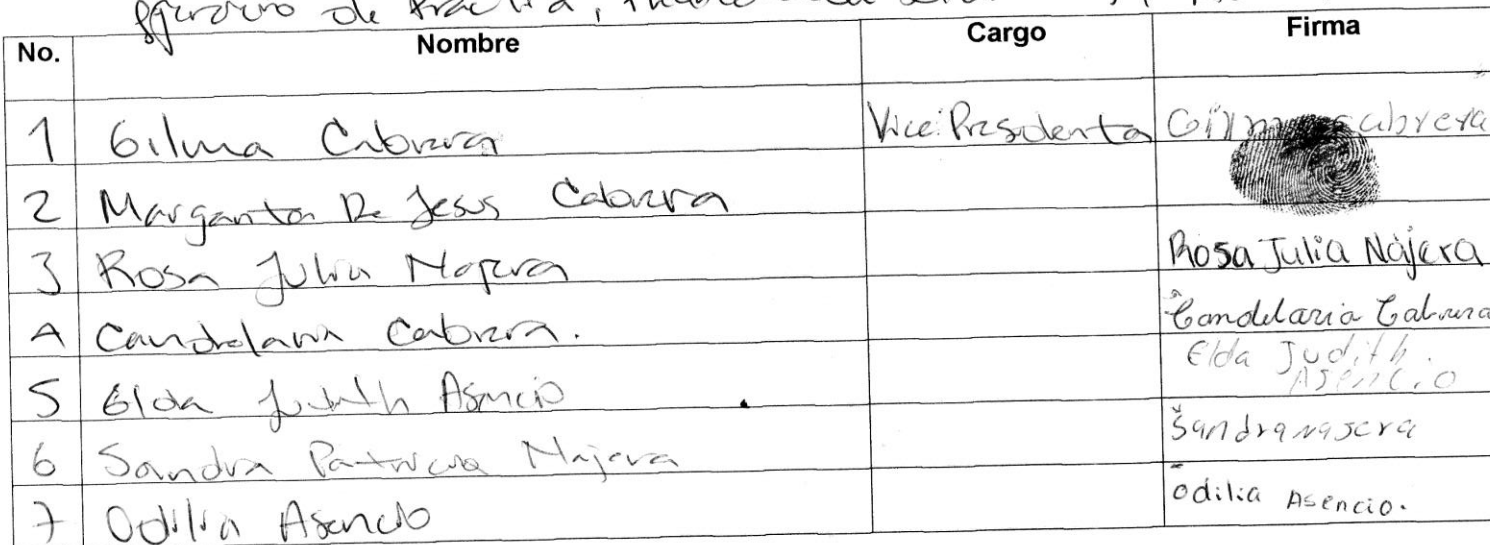 de
No. Nombre Cargo Firma
1 Gilma Cabrera Vice Presidenta Gilma cabrera
2 Margarita De Jesus Cabrera
3 Rosa Julia Najera Rosa Julia Nàjera
4 Candelaria Cabrera. Candelaria Cabrera
5 Elda Judith Asencio Elda Judith. Asencio
6 Sandra Patricia Najera Sandra nagera
7 Odilia Asencio Odilia Asencio.